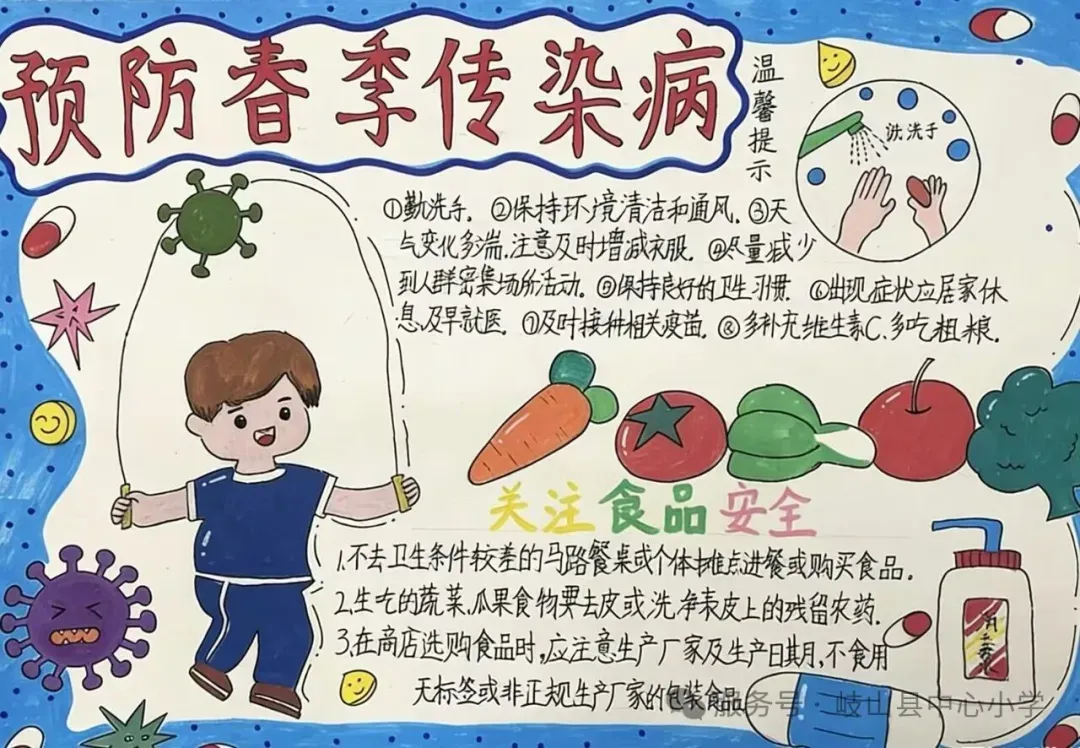 预防春季传染病
温馨提示
洗洗手
①勤洗手. ②保持环境清洁和通风. ③天
气变化多端.注意及时增减衣服. ④尽量减少
到人群密集场所活动. ⑤保持良好的卫生习惯. ⑥出现症状应居家休
息,及早就医. ⑦及时接种相关疫苗. ⑧多补充维生素C、多吃粗粮.
关注食品安全
1.不去卫生条件较差的马路餐桌或个体摊点进餐或购买食品.
2.生吃的蔬菜.瓜果食物要去皮或洗净表皮上的残留农药.
3.在商店选购食品时,应注意生产厂家及生产日期,不食用
无标签或非正规生产厂家的包装食品
服务号·岐山县中心小学